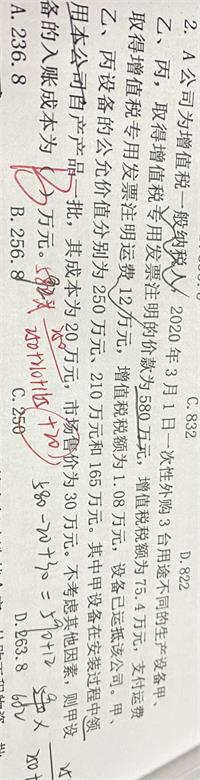 C.832 D.822
2. A公司为增值税一般纳税人，2020年3月1日一次性外购3台用途不同的生产设备甲、
乙、丙，取得增值税专用发票注明的价款为580万元，增值税税额为75.4万元，支付运费
取得增值税专用发票注明运费12万元，增值税税额为1.08万元，设备已运抵该公司。甲、
乙、丙设备的公允价值分别为250万元、210万元和165万元。其中甲设备在安装过程中领
用本公司自产产品一批，其成本为20万元，市场售价为30万元。不考虑其他因素，则甲设
备的入账成本为 B 万元。
A.236.8 B.256.8 C.250 D.263.8
580-20+30=590+12